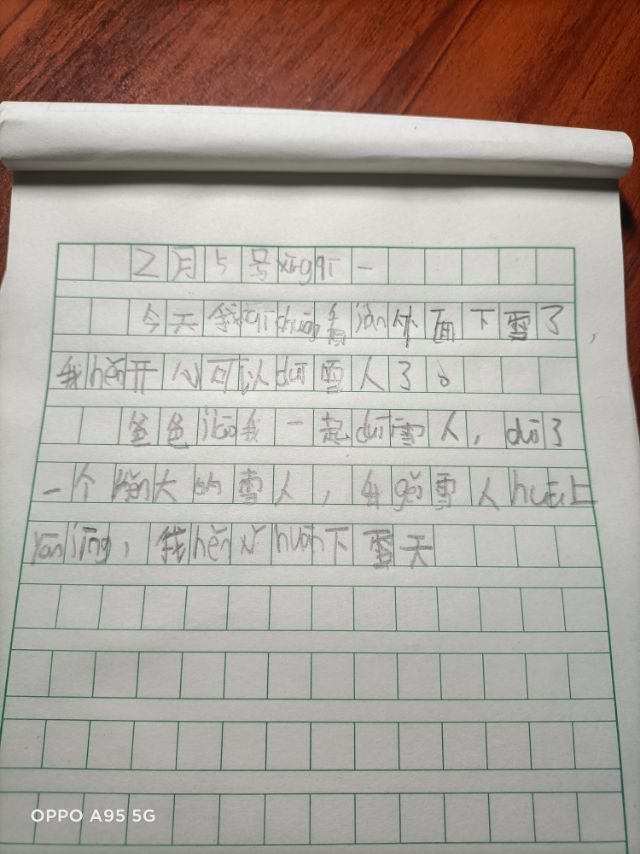 2月5号xīngqī一
今天我qǐ chuáng看jiàn外面下雪了，
我hěn开心可以duī雪人了。
爸爸jiāo我一起duī雪人，duī了
一个hěn大的雪人，我gěi雪人huà上
yǎn jīng，我hěn xǐ huān下雪天
OPPO A95 5G